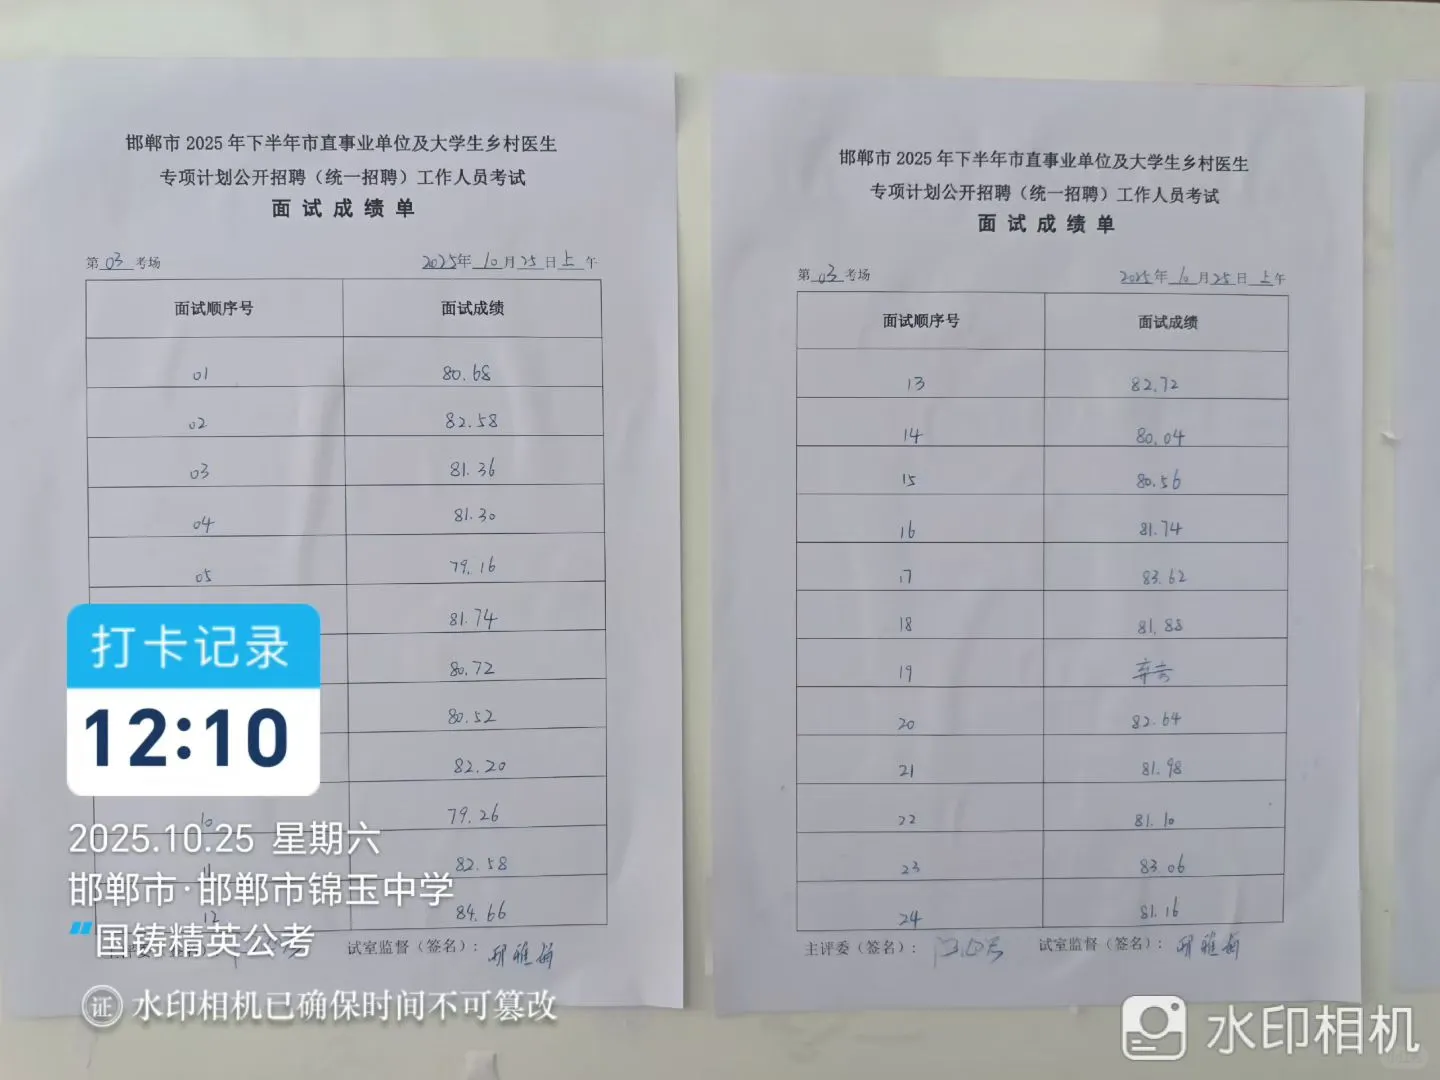 邯郸市 2025 年下半年市直事业单位及大学生乡村医生
专项计划公开招聘（统一招聘）工作人员考试
面试成绩单
第 03 考场 2025年 10 月 25 日 上 午
面试顺序号 面试成绩
01 80.68
02 82.58
03 81.36
04 81.30
05 79.16
81.74
80.72
80.52
82.20
10 79.26
11 82.58
12 84.66
试室监督（签名）：
邯郸市 2025 年下半年市直事业单位及大学生乡村医生
专项计划公开招聘（统一招聘）工作人员考试
面试成绩单
第 03 考场 2025年 10 月 25 日 上 午
面试顺序号 面试成绩
13 82.72
14 80.04
15 80.56
16 81.74
17 83.62
18 81.88
19 弃考
20 82.64
21 81.98
22 81.10
23 83.06
24 81.16
主评委（签名）： 试室监督（签名）：
打卡记录
12:10
2025.10.25 星期六
邯郸市·邯郸市锦玉中学
国铸精英公考
证 水印相机已确保时间不可篡改
水印相机